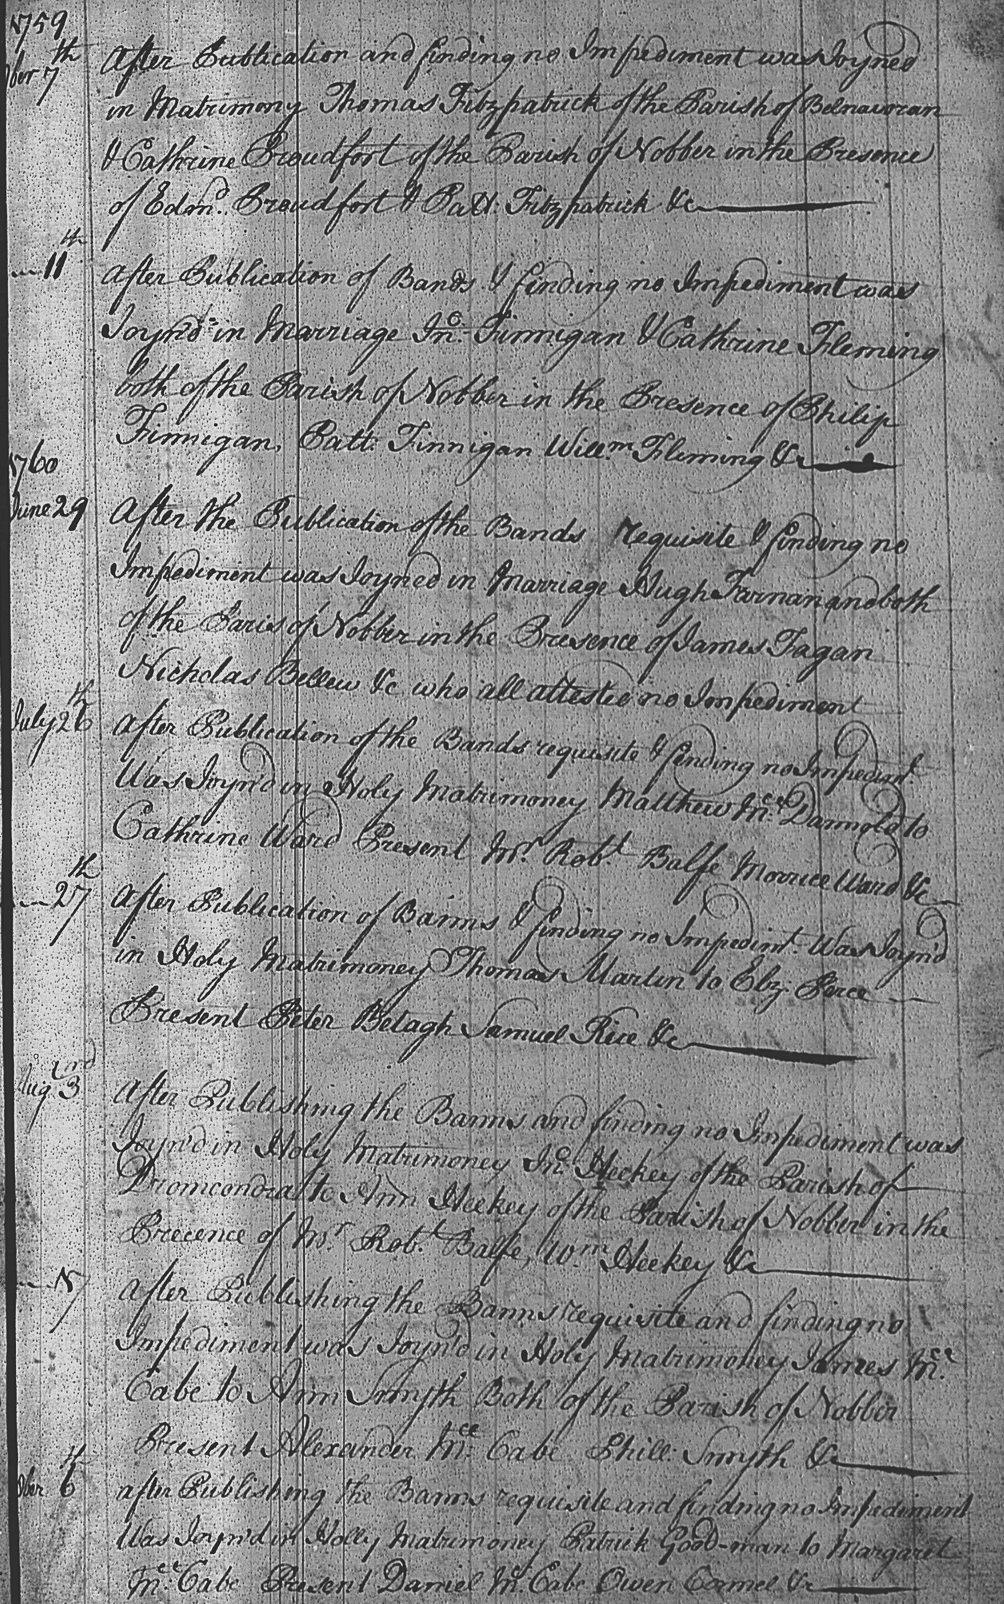 1759
ber 7th After Publication and finding no Impediment was Joyned
in Matrimony Thomas Fitzpatrick of the Parish of Belnavoran
& Cathrine Proudfort of the Parish of Nobber in the Presence
of Edmd. Proudfort & Patt: Fitzpatrick &c
11th After Publication of Bands & finding no Impediment was
Joyn'd in Marriage Jno. Finnigan & Cathrine Fleming
both of the Parish of Nobber in the Presence of Philip
Finnigan, Patt. Finnigan Willm. Fleming &c
1760
June 29 After the Publication of the Bands requisite & finding no
Impediment was Joyned in Marriage Hugh Farnan and both
of the Paris of Nobber in the Presence of James Fagan
Nicholas Bellew &c who all attested no Impediment
July 26th After Publication of the Bands requisite & finding no Impedimt
Was Joyn'd in Holy Matrimoney Matthew Mcc. Dannold to
Cathrine Ward Present Mr. Robt Balfe Morrice Ward &c
27th After Publication of Banns & finding no Impedimt. Was Joyn'd
in Holy Matrimoney Thomas Martin to Elxz: Perce
Present Peter Betagh Samuel Rice &c
Aug 3rd After Publishing the Banns and finding no Impediment was
Joyn'd in Holy Matrimoney Jno. Heekey of the Parish of
Dromcondra to Ann Heekey of the Parish of Nobber in the
Precence of Mr Robt. Balfe, Wm. Heekey &c
17 After Publishing the Banns requisite and finding no
Impediment was Joyn'd in Holy Matrimoney James Mcc.
Cabe to Ann Smyth Both of the Parish of Nobber
Present Alexander Mcc. Cabe Phill: Smyth &c
ber 6th after Publishing the Banns requisite and finding no Impediment
Was Joyn'd in Holly Matrimoney Patrick Good-man to Margaret
Mcc. Cabe Present Daniel Mc. Cabe Owen Cormel &c